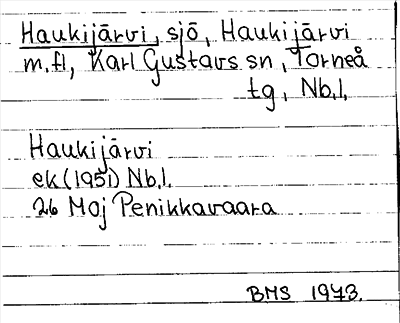 Haukijärvi, sjö, Haukijärvi
m.fl, Karl Gustavs sn, Torneå
tg, Nb.l.
Haukijärvi
ek (1951) Nb.l.
26 Moj Penikkavaara
BMS 1973.